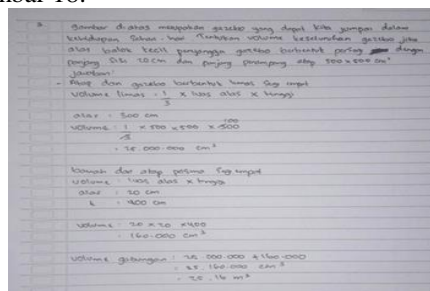 3. Gambar diatas merupakan gazebo yang dapat kita jumpai dalam
kehidupan sehari-hari. Tentukan volume keseluruhan gazebo jika
alas balok kecil penyangga gazebo berbentuk persegi dengan
panjang sisi 20 cm dan panjang penampang atap 500 x 500 cm!
Jawaban:
- Atap dari gazebo berbentuk limas segi empat
volume limas : 1/3 x luas alas x tinggi
alas : 500 cm
volume : 1/3 x 500 x 500 x 300 100
= 25.000.000 cm³
bawah dari atap prisma segi empat
volume : luas alas x tinggi
alas : 20 cm
t : 400 cm
volume : 20 x 20 x 400
= 160.000 cm³
volume gabungan : 25.000.000 + 160.000
= 25.160.000 cm³
= 25,16 m³